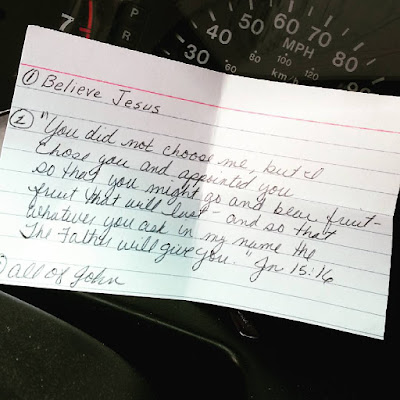 7
P
R
30
40
70
80
MPH
km/h
60
80
100
120
① Believe Jesus
② "You did not choose me, but I
chose you and appointed you
so that you might go and bear fruit-
fruit that will last - and so that
whatever you ask in my name the
The Father will give you." Jn 15:16
all of John